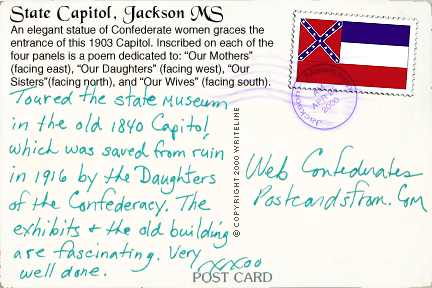 State Capitol, Jackson MS
An elegant statue of Confederate women graces the
entrance of this 1903 Capitol. Inscribed on each of the
four panels is a poem dedicated to: “Our Mothers”
(facing east), “Our Daughters” (facing west), “Our
Sisters”(facing north), and “Our Wives” (facing south).
Toured the state museum
in the old 1840 Capitol,
which was saved from ruin
in 1916 by the Daughters
of the Confederacy. The
exhibits + the old building
are fascinating. Very
well done.
xxxoo
©COPYRIGHT 2000 WRITELINE
Web Confederates
PostcardsFrom.Com
2000
POST CARD